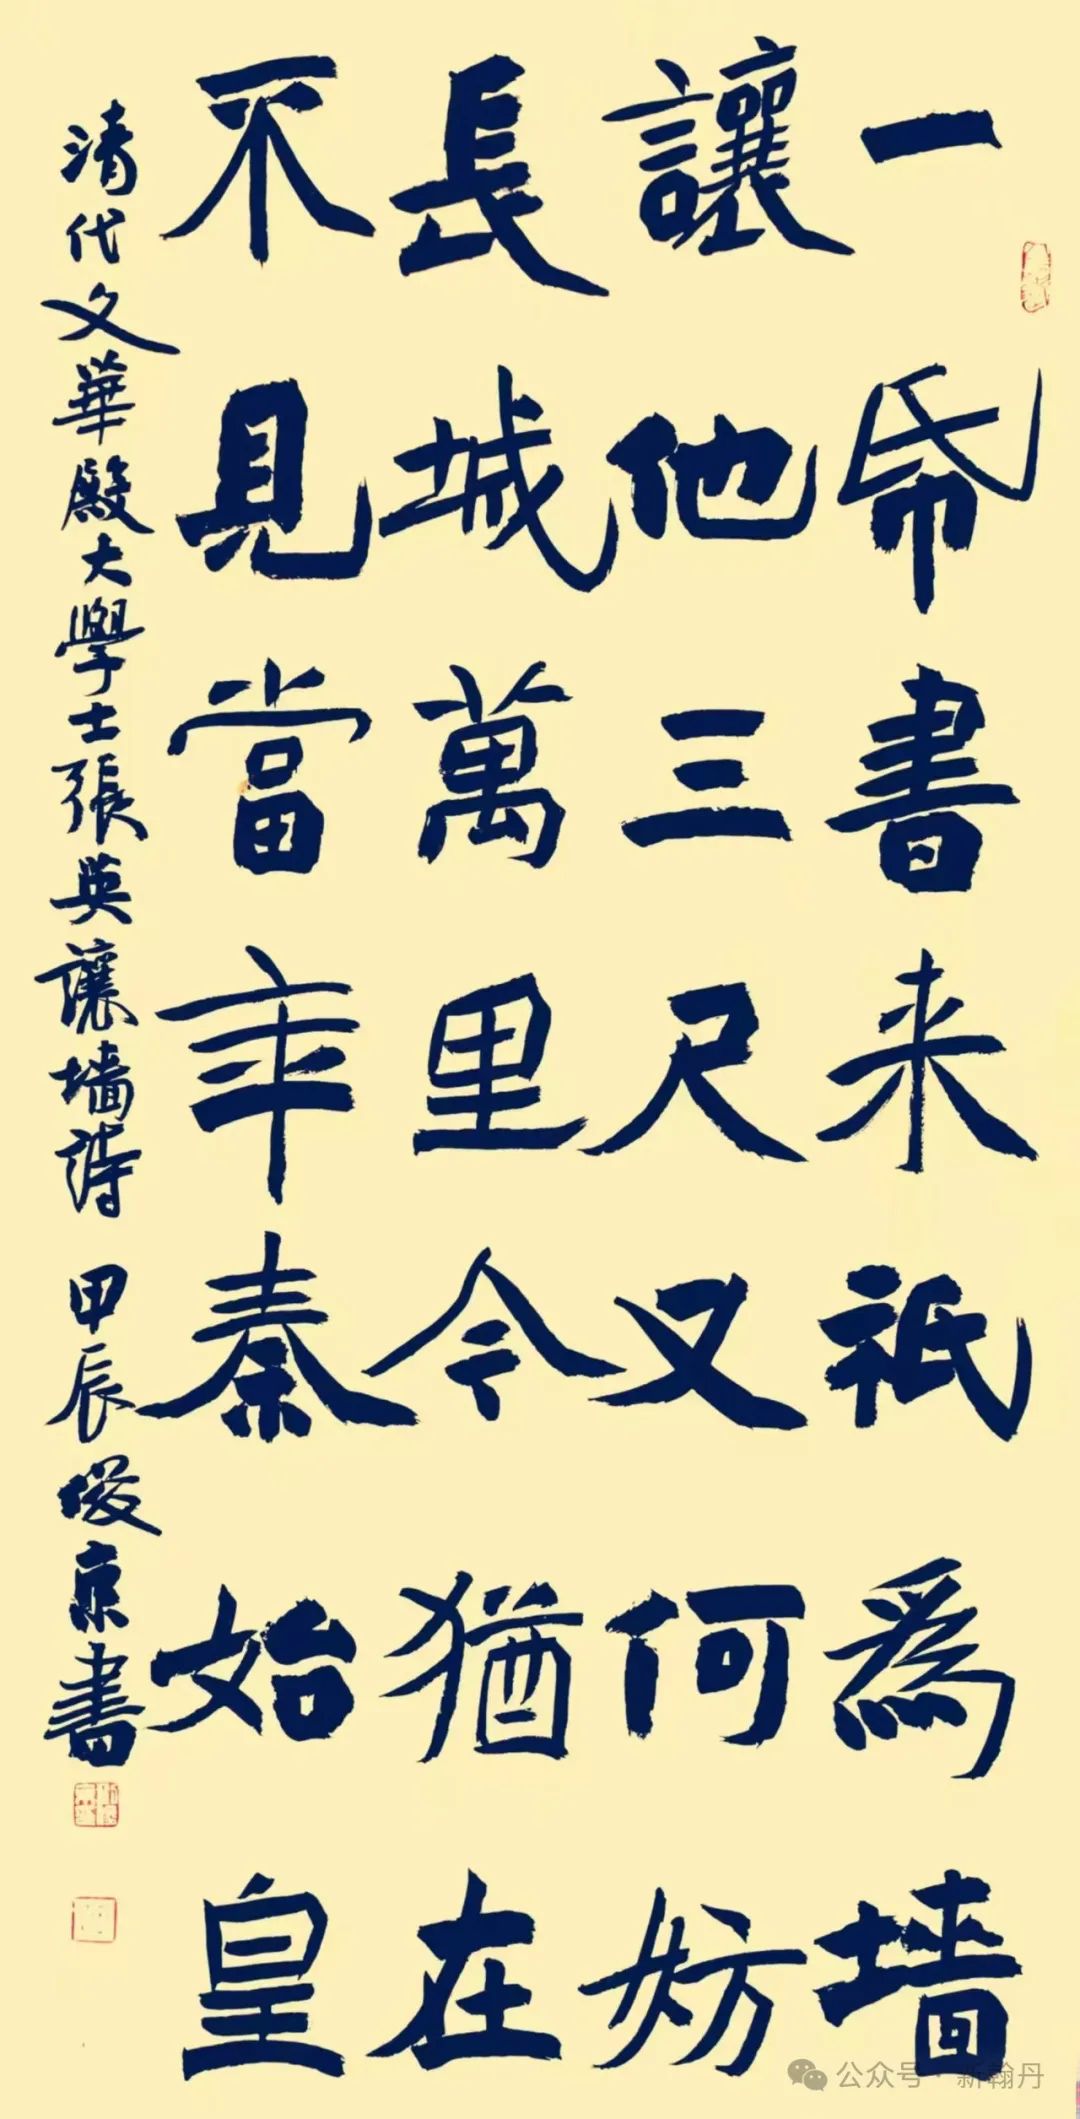 一帋書来祇為墙
讓他三尺又何妨
長城萬里今猶在
不見當年秦始皇
清代文華殿大學士張英讓墙詩 甲辰俊京書
公众号·新翰丹